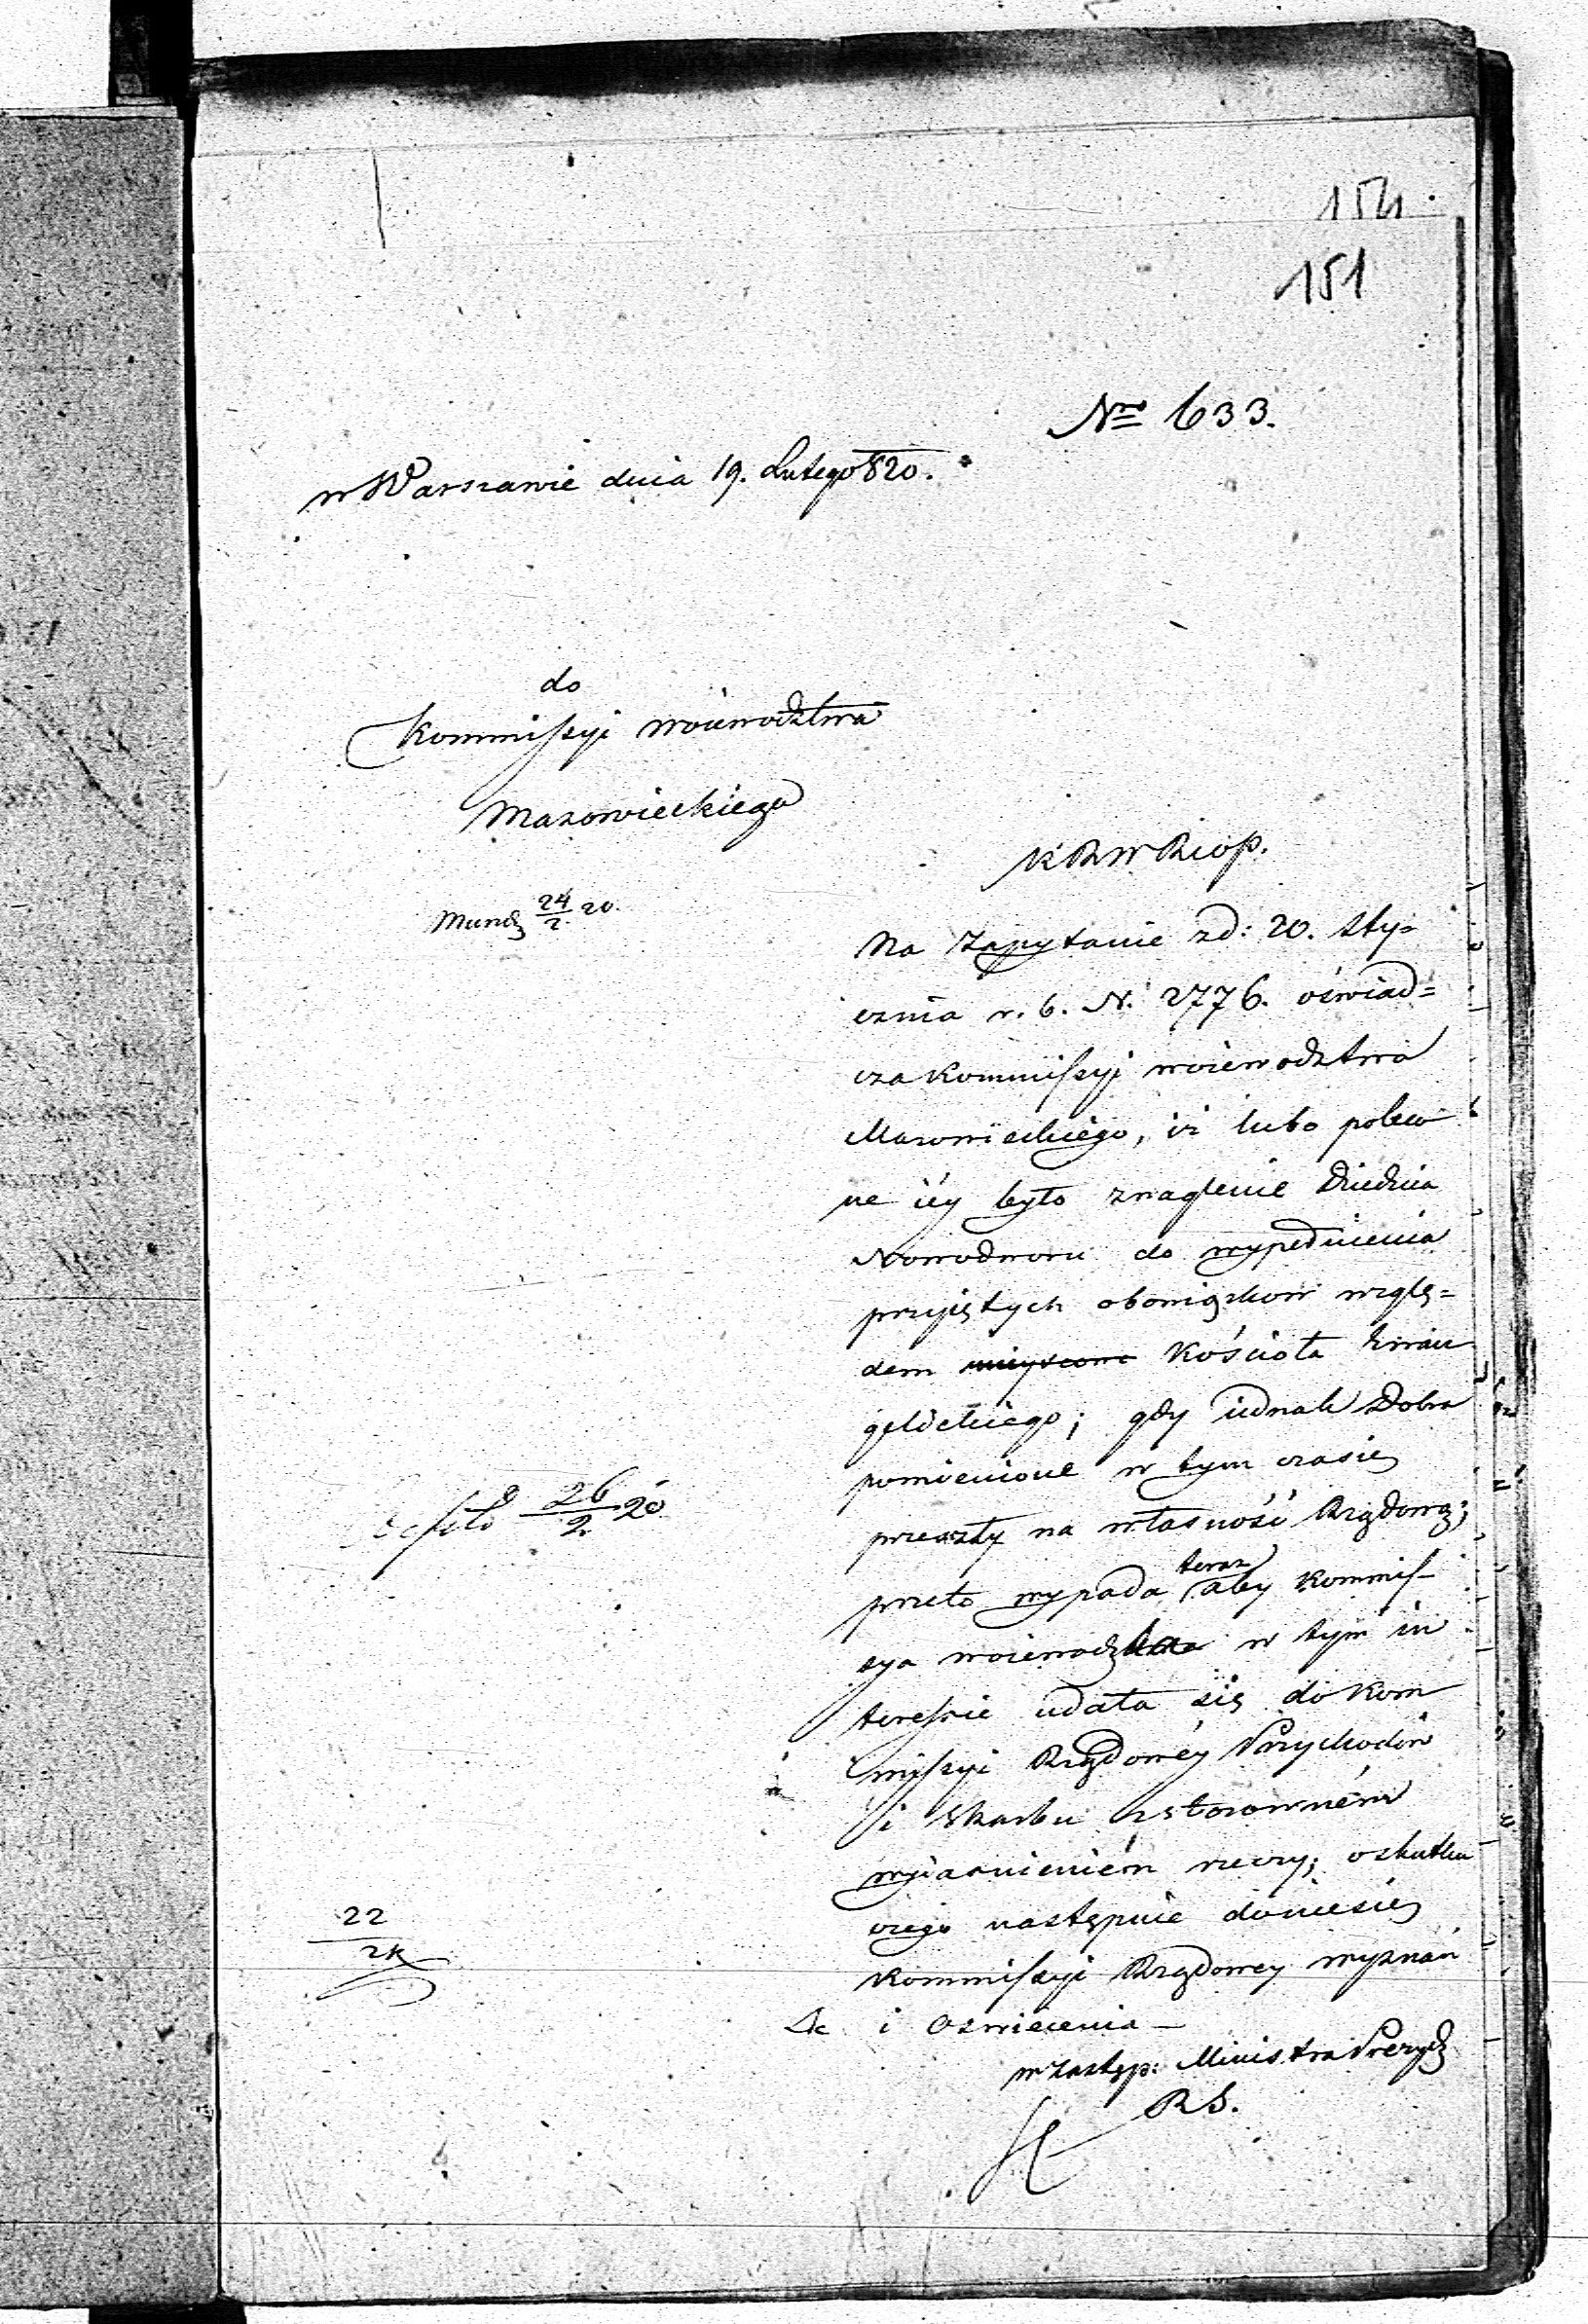 154.
151
Nro 633.
w Warszawie dnia 19. Lutego 820.
do
Kommissyi Woiewodztwa
Mazowieckiego
Mund 24/2 20.
KRWRiOP.
Na Zapytanie z d: 20. Sty=
cznia r. b. N. 2776. oświad=
cza Kommissyi woiewodztwa
Mazowieckiego, iż lubo poleco
ne iéy było znaglenie Dziedzica
Nowodworu do wypełnienia
przyiętych obowiązków wzglę=
dem mieyscowe Kościoła Ewan
gelickiego; gdy iednak Dobra
pomienione w tym czasie
przeszły na własność Rządową;
przeto wypada teraz aby Kommis-
sya woiewodztwa w tym in
teressie udała się do Kom
missyi Rządowéy Przychodów
i Skarbu z stosowném
wyiaśnieniém rzeczy; o skutku
czego następnie doniesie
Kommissyi Rządowey wyznań
i Oświecenia —
w zastęp: Ministra Prezyd
RS.
26/2 20
22/2